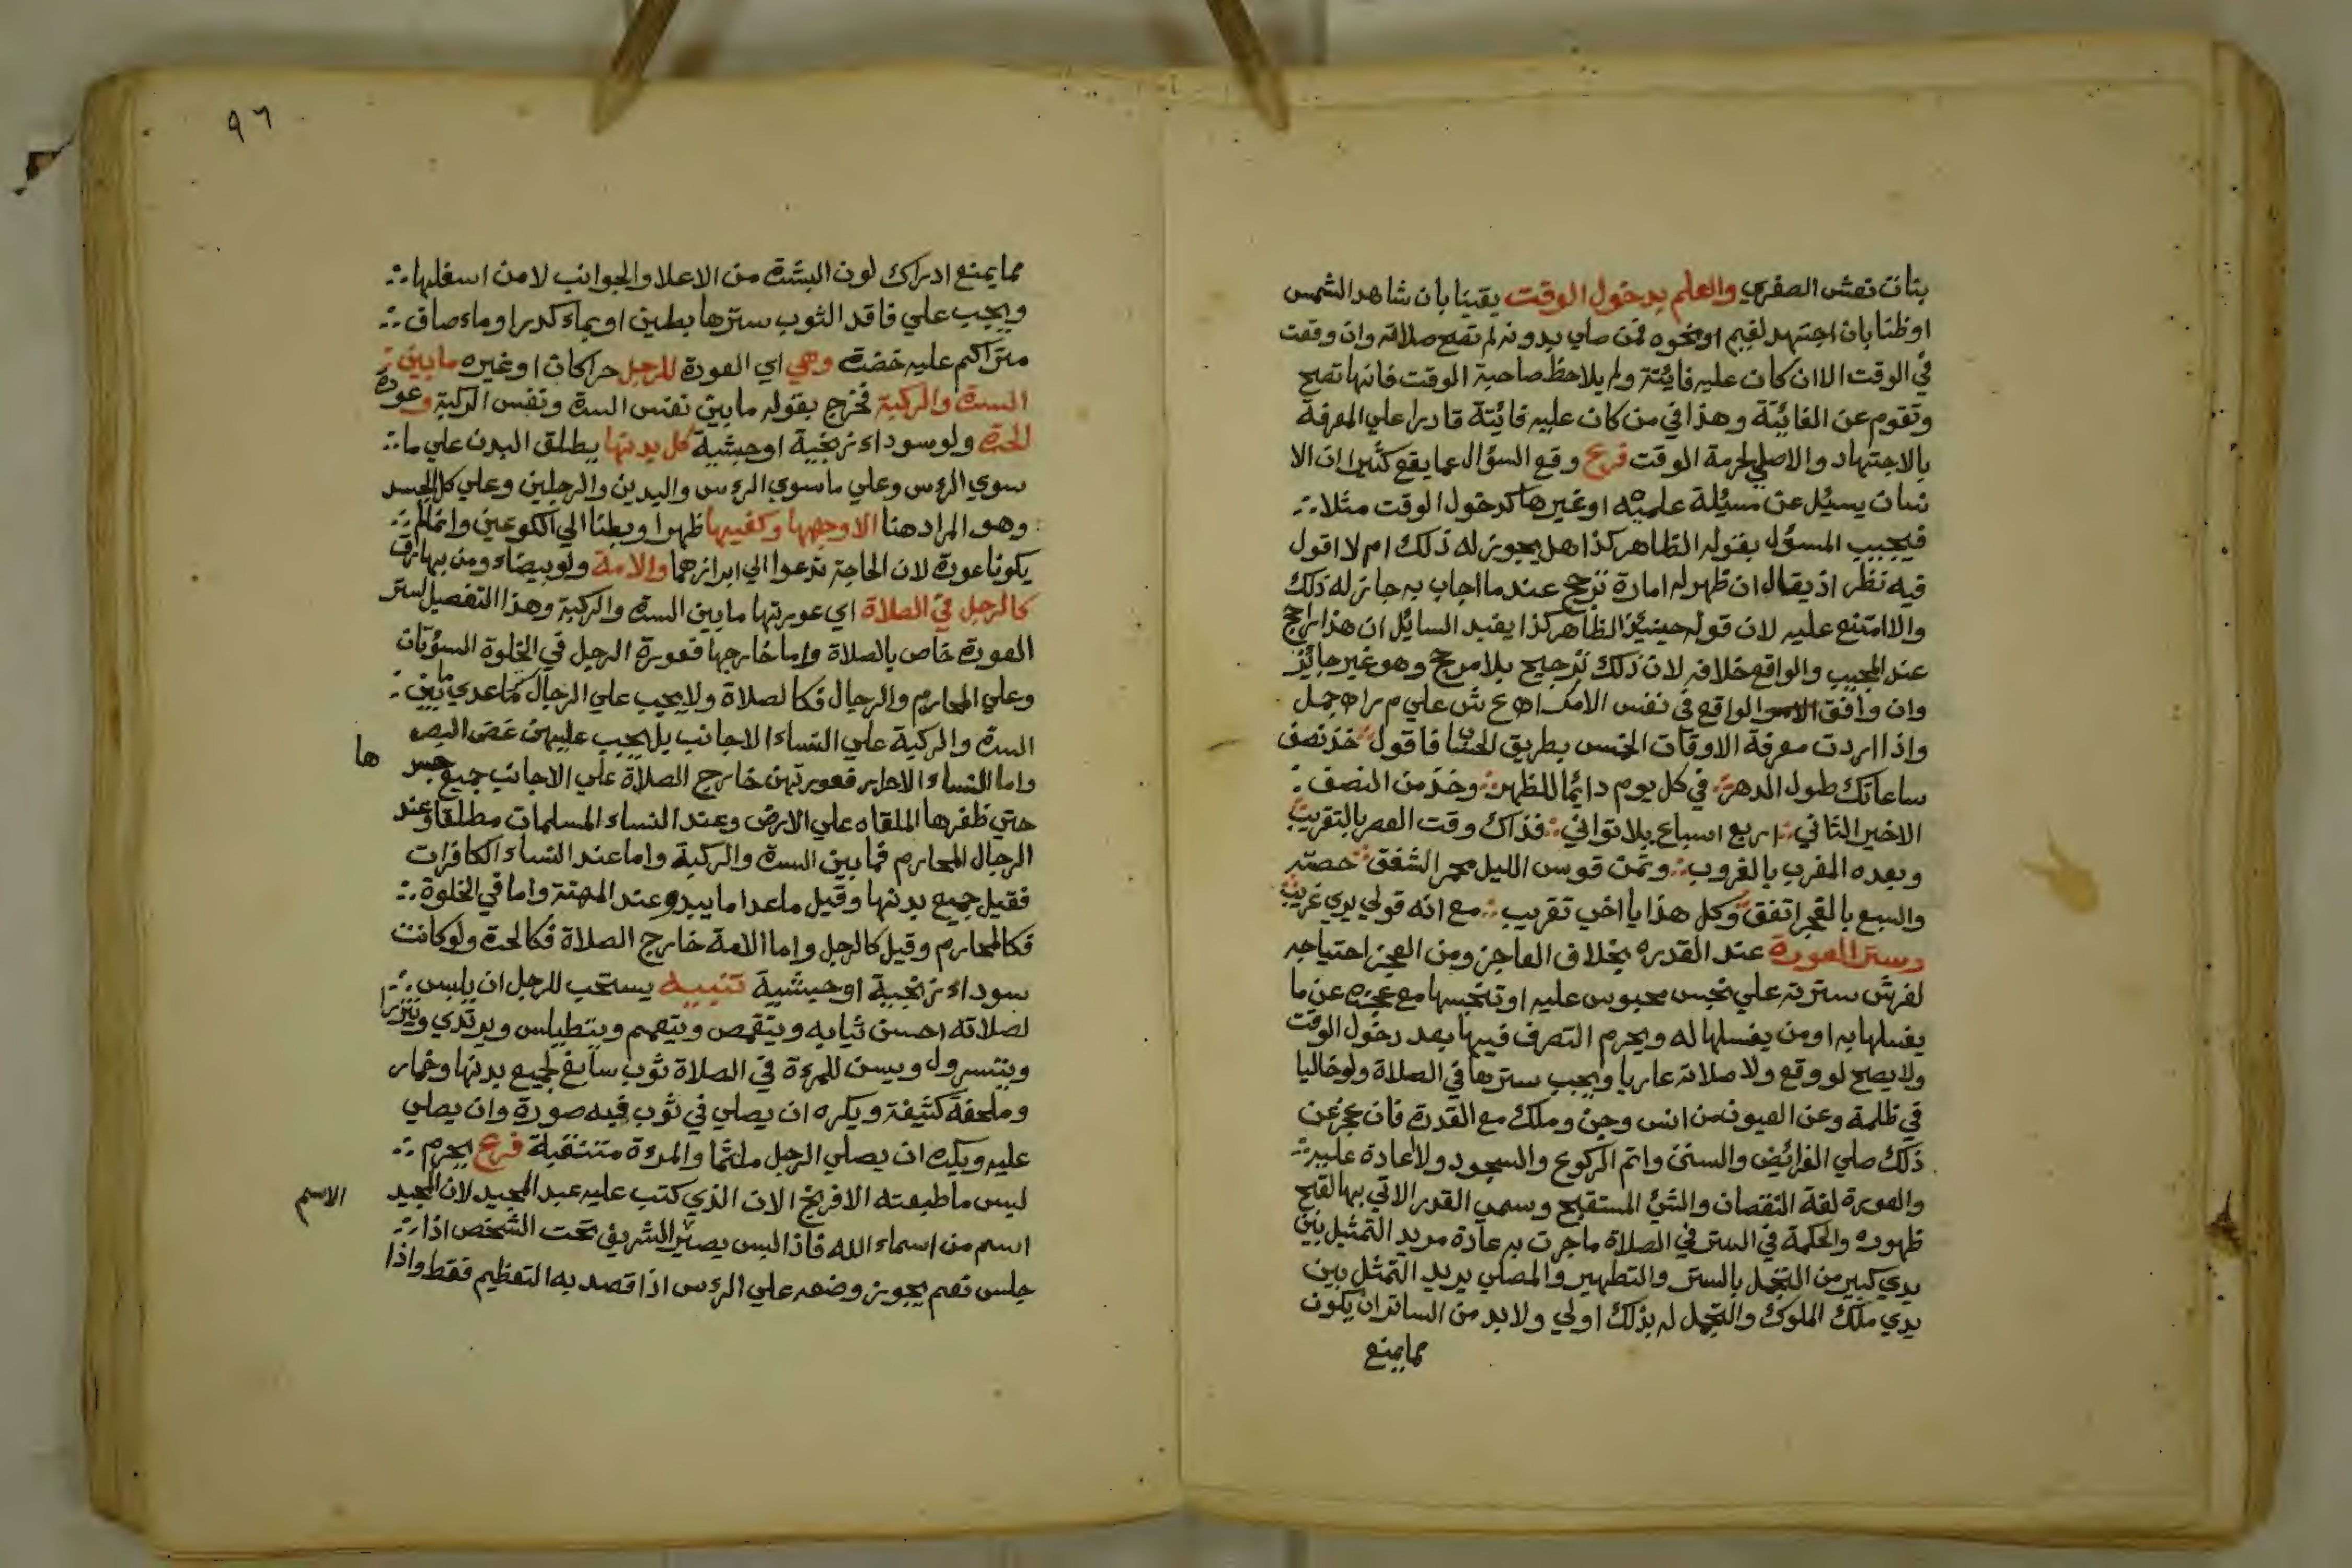 بنات نعش الصغري والعلم بدخول الوقت يقينا بان شاهد الشمس
او ظنا بان اجتهد لغيم او نحوه فمن صلي بدونه لم تصح صلاته وان وقعت
في الوقت الا ان كان عليه فائتة ولم يلاحظ صاحبة الوقت فانها تصح
وتقوم عن الفائتة وهذا في من كان عليه فائتة قادرا علي المعرفة
بالاجتهاد والاصلي لحرمة الوقت فرع وقع السؤال عما يقع كثيرا ان الا
نسان يسئل عن مسئلة علميه او غيرها كدخول الوقت مثلا
فيجيب المسؤل بقوله الظاهر كذا هل يجوز له ذلك ام لا اقول
فيه نظر اذ يقال ان ظهر له امارة ترجح عند ما اجاب به جاز له ذلك
والا امتنع عليه لان قوله حينيذ الظاهر كذا يفيد السايل ان هذا راجح
عند المجيب والواقع خلافه لان ذلك ترجيح بلا مرجح وهو غير جائز
وان وافق الواقع في نفس الامر اه ع ش علي م ر اه جمل
واذا اردت معرفة الاوقات الخمس بطريق الحساب فاقول خذ نصف
ساعاتك طول الدهر في كل يوم دائما للظهر وخذ من النصف
الاخير الثاني اربع اسباع بلا تواني فذاك وقت العصر بالتقريب
وبعده المغرب بالغروب وثمن قوس الليل محمر الشفق حصته
والسبع بالفجر اتفق وكل هذا يا اخي تقريب مع انه قولي يري غريب
وستر العورة عند القدره بخلاف العاجز ومن العجز احتياجه
لفرش سترته علي نجس محبوس عليه او تنجسها مع عجزه عن ما
يغسلها به او من يغسلها له ويحرم التصرف فيها بعد دخول الوقت
ولا يصح لو وقع ولا صلاته عاريا ويجب سترها في الصلاة ولو خاليا
في ظلمة وعن العيون من انس وجن وملك مع القدرة فان عجز عن
ذلك صلي الفرائض والسنن واتم الركوع والسجود ولا عادة عليه
والعورة لغة النقصان والشئ المستقبح وسمي القدر الاتي بها لقبح
ظهوره والحكمة في الستر في الصلاة ما جرت به عادة مريد التمثيل بين
يدي كبير من التجمل بالستر والتطهير والمصلي يريد التمثل بين
يدي ملك الملوك والتجمل له بذلك اولي ولا بد من الساتر ان يكون
مما يمنع
٩٦
مما يمنع ادراك لون البشرة من الاعلا والجوانب لا من اسفلها
ويجب علي فاقد الثوب سترها بطين او بماء كدر او ماء صاف
متراكم عليه خضرة وهي اي العورة للرجل حرا كان او غيره ما بين
السرة والركبة فخرج بقوله ما بين نفس السرة ونفس الركبة وعورة
الحرة ولو سوداء زنجية او حبشية كل بدنها يطلق البدن علي ما
سوي الرءس وعلي ما سوي الرءس واليدين والرجلين وعلي كل الجسد
وهو المراد هنا الا وجهها وكفيها ظهرا وبطنا الي الكوعين وانما لم
يكونا عورة لان الحاجة تدعوا الي ابرازهما والامة ولو بيضاء ومن بها رق
كالرجل في الصلاة اي عورتها ما بين السرة والركبة وهذا التفصيل لستر
العورة خاص بالصلاة واما خارجها فعورة الرجل في الخلوة السؤتان
وعلي المحارم والرجال فكالصلاة ولا يجب علي الرجال كما عدي ما بين
السرة والركبة علي النساء الاجانب بل يجب عليهن غض البصر
واما النساء الاحرار فعورتهن خارج الصلاة علي الاجانب جميع
ها
حتي ظفرها الملقاه علي الارض وعند النساء المسلمات مطلقا وعند
الرجال المحارم فما بين السرة والركبة واما عند النساء الكافرات
فقيل جميع بدنها وقيل ما عدا ما يبدو عند المهنة واما في الخلوة
فكالمحارم وقيل كالرجل واما الامة خارج الصلاة فكالحرة ولو كانت
سوداء زنجية او حبشية تنبيه يستحب للرجل ان يلبس
لصلاته احسن ثيابه ويتقمص ويتعمم ويتطيلس ويرتدي ويتزر
ويتسرول ويسن للمرءة في الصلاة ثوب سابغ لجميع بدنها وخمار
وملحفة كثيفة ويكره ان يصلي في ثوب فيه صورة وان يصلي
عليه ويكره ان يصلي الرجل ملثما والمرءة متنقبة فرع يحرم
لبس ما طبعته الافرنج الان الذي كتب عليه عبد المجيد لان المجيد
الاسم
اسم من اسماء الله فاذا لبس يصير الشريف تحت الشخص اذا
جلس نعم يجوز وضعه علي الرءس اذا قصد به التعظيم فقط واذا